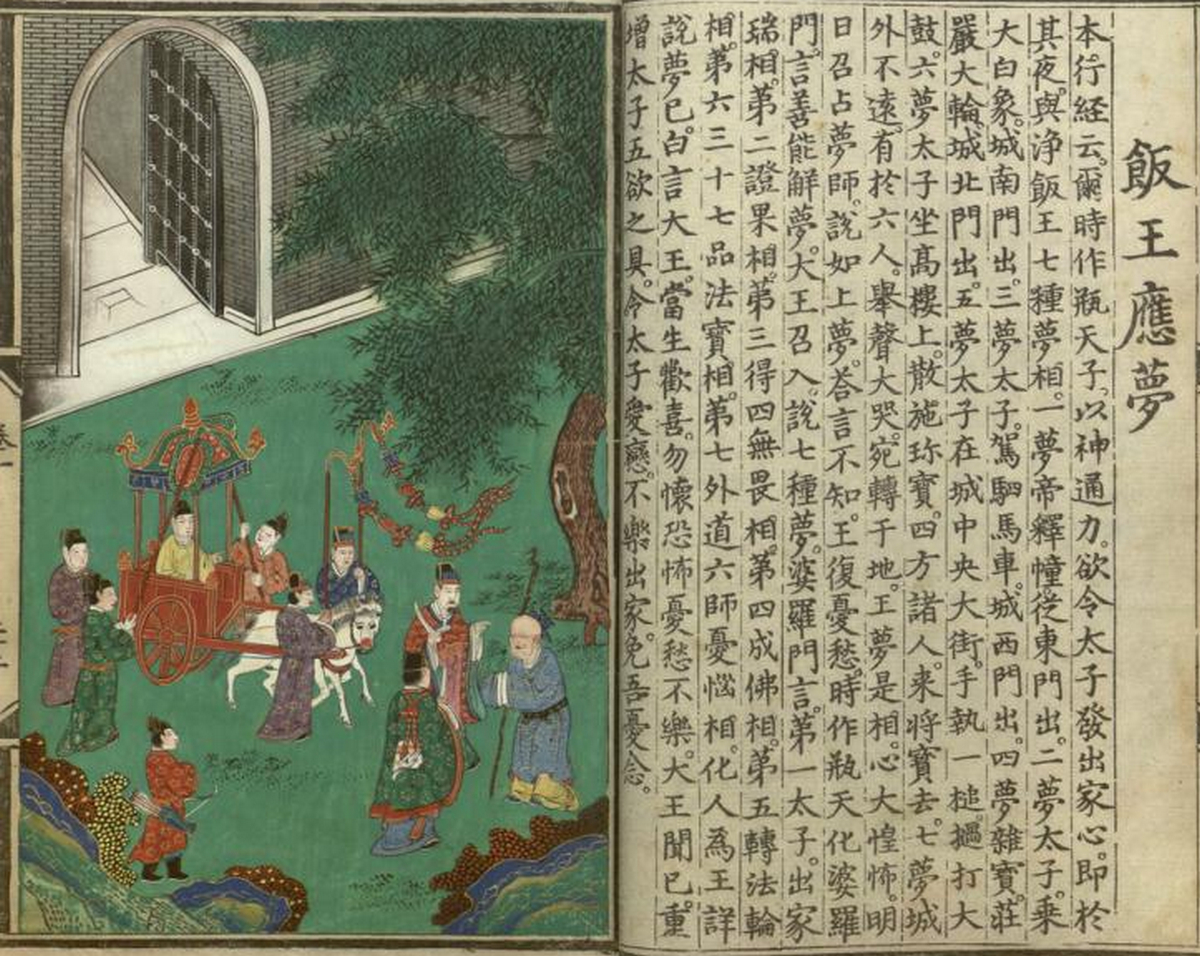 飯王應夢
本行経云。爾時作瓶天子。以神通力。欲令太子發出家心。即於
其夜。與浄飯王七種夢相。一夢帝釋幢。從東門出。二夢太子。乘
大白象。城南門出。三夢太子。駕駟馬車。城西門出。四夢雜寶。莊
嚴大輪。城北門出。五夢太子在城中央大街。手執一槌。撾打大
鼓。六夢太子坐髙樓上。散施珎寶。四方諸人。来將寶去。七夢城
外不遠。有於六人。舉聲大哭。宛轉于地。王夢是相。心大惶怖。明
日召占夢師。說如上夢。荅言不知。王復憂愁。時作瓶天化婆羅
門。言善能解夢。大王召入。說七種夢。婆羅門言。第一太子。出家
瑞相。第二證果相。第三得四無畏相。第四成佛相。第五轉法輪
相。第六三十七品法寶相。第七外道六師憂惱相。化人為王詳
說夢已。白言大王。當生歡喜。勿懷恐怖憂愁不樂。大王聞已。重
增太子五欲之具。令太子愛戀。不樂出家。免吾憂念。